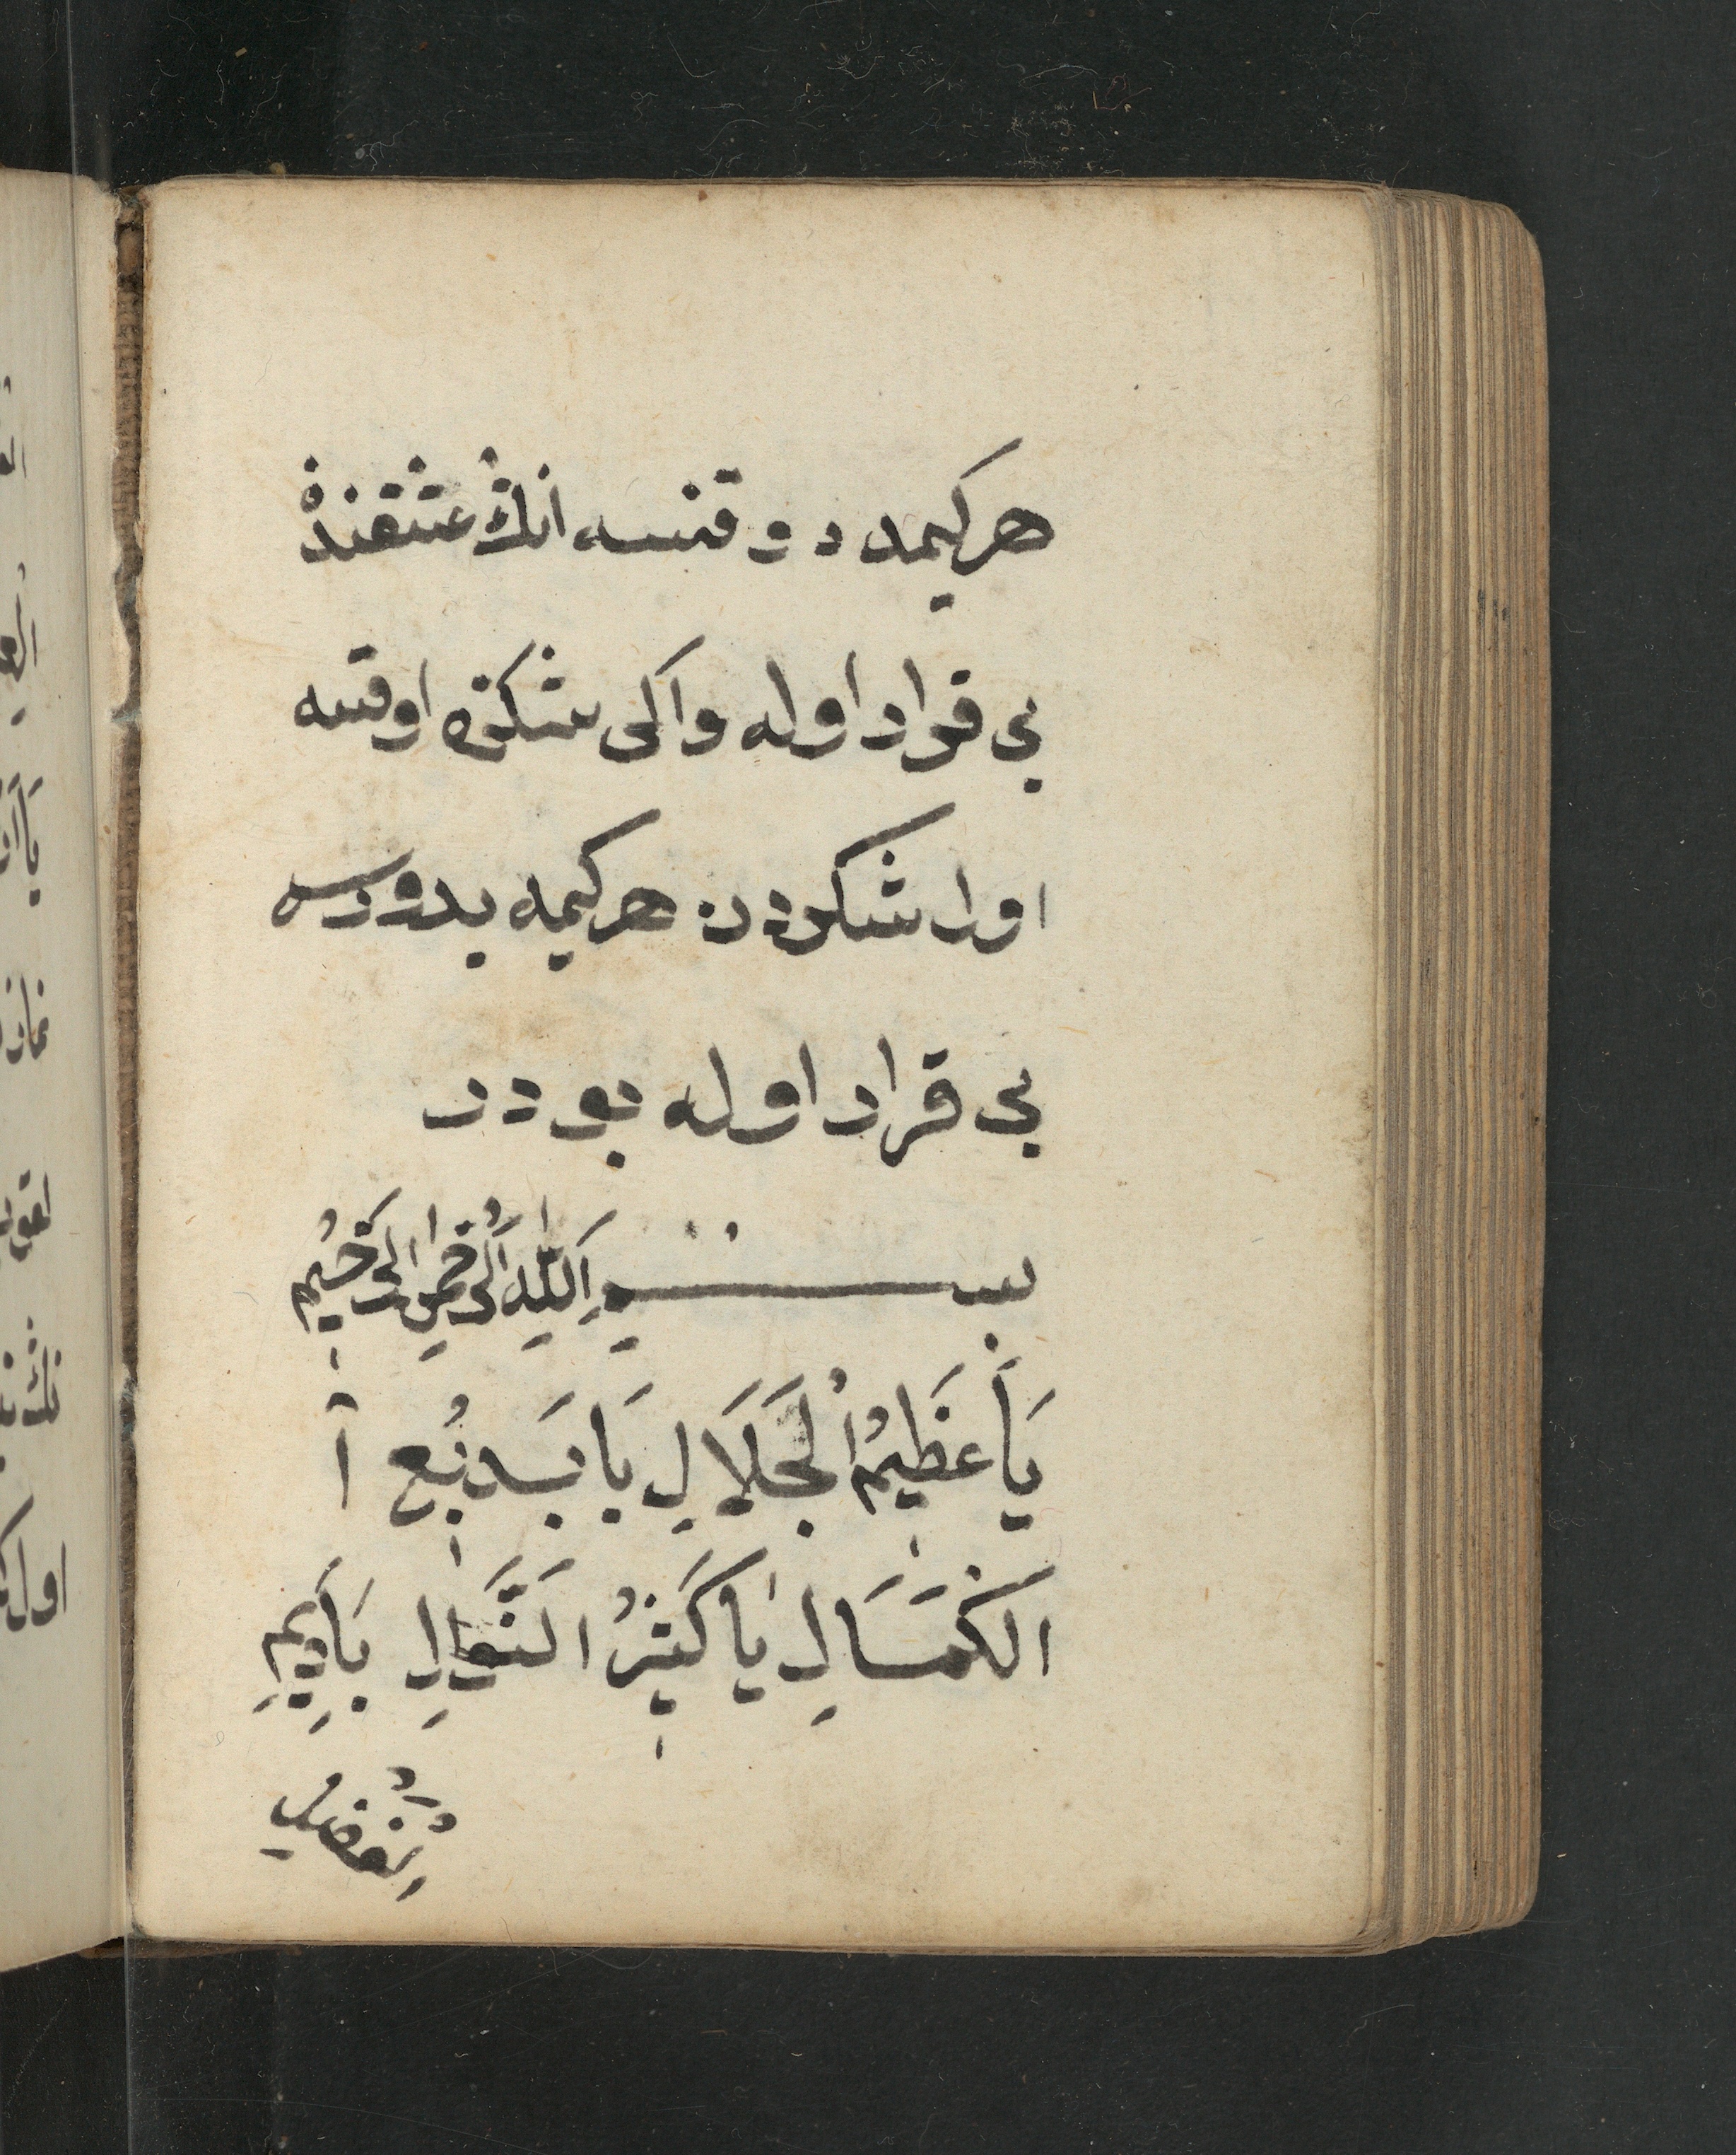 هر كیمه دوقنسه انڭ عشقنده
بی قرار اوله و اكی شكره اوقسه
اول شكردن هر كیمه یدورسه
بی قرار اوله بودر
بسم اَللّٰهِ الرَّحْمٰنِ الرَّحيمِ
يَا عَظيمُ الْجَلَالِ يَا بَديعُ آ
الكَمَالِ يَا كَثيرُ النَّوَالِ يَا